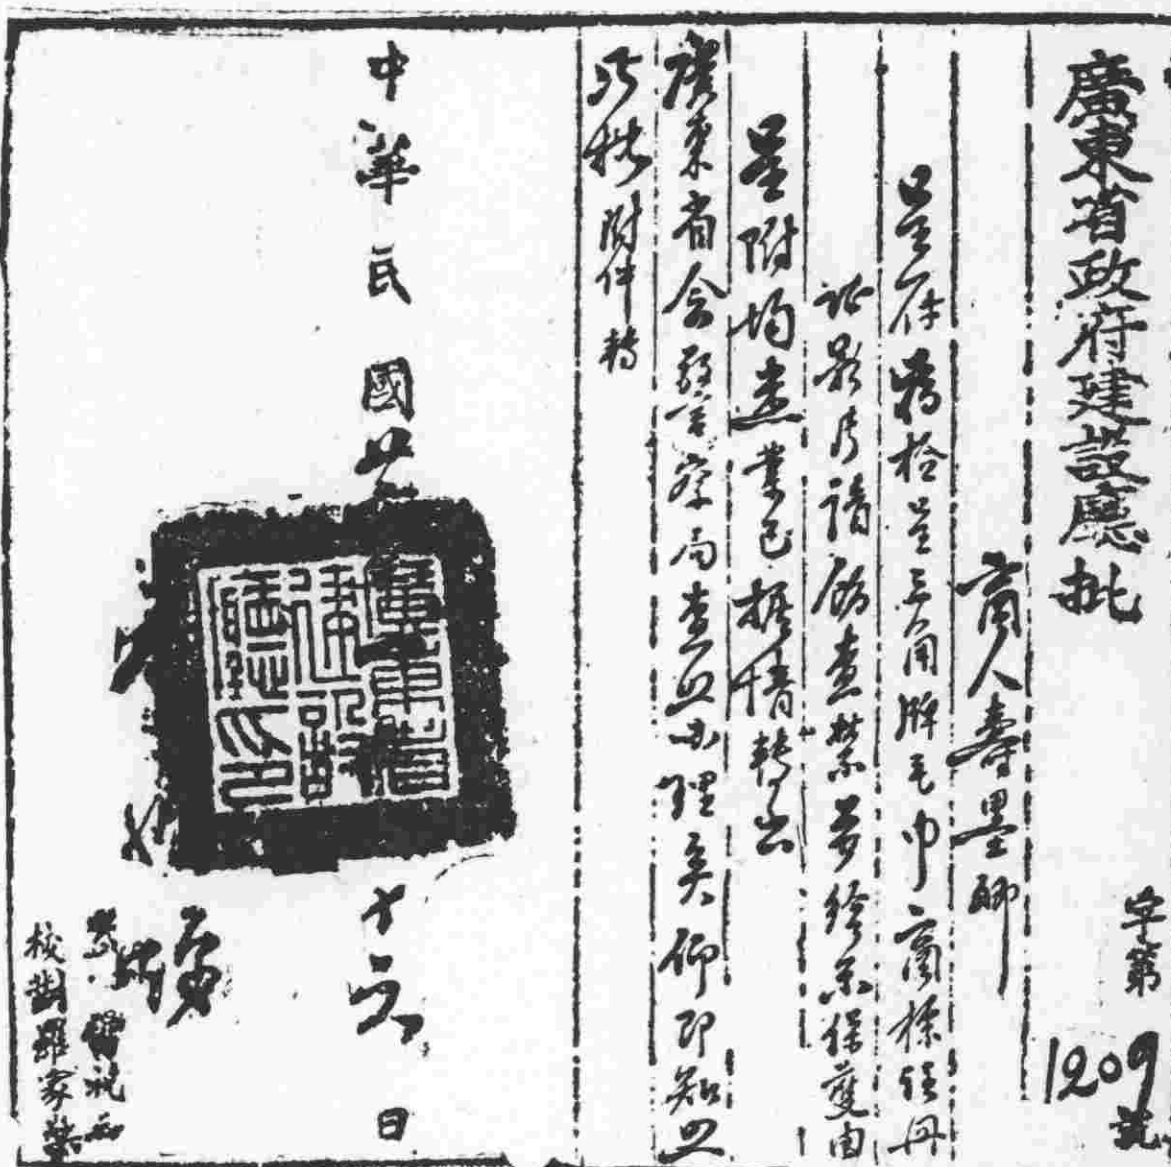 廣東省政府建設廳批
字第1209號
商人壽墨卿
呈存為檢呈三角牌毛巾商標註冊
証影片請飭查禁並給示保護由
呈附均悉業已據情轉函
廣東省會警察局查照辦理矣仰即知照
此批附件轉
中華民國廿 十六日
廣東省建設廳印
校對羅家